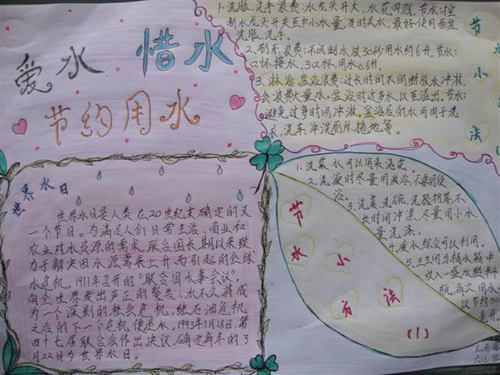 爱水 惜水
节约用水
世界水日
世界水日是人类在20世纪末确定的又
一个节日。为满足人们日常生活、商业和
农业对水资源的需求,联合国长期以来致
力于解决因水源需求上升而引起的全球
水危机。1977年召开的“联合国水事会议”,
向全世界发出严正的警告:水不久将成
为一个深刻的社会危机,继石油危机
之后的下一个危机便是水。1993年1月18日,第
四十七届联合会作出决议确定每年的3
月22日为世界水日。
节水小方法
1.洗脸、洗手浪费:水龙头开大,水花四溅。节水:控
制水龙头开关至中小水量,及时关水,最好使用面盆
洗脸、洗手。
2.刷牙浪费:不间断放水30秒用水约6升。节水:
口杯接水,3口杯用水0.6升。
3.淋浴盆浴浪费:过长时间不间断放水冲淋,
会浪费大量水,盆浴时过多放水以至溢出。节水:
避免过长时间冲淋,盆浴后的水可用于洗
衣、洗车、冲洗厕所、拖地等。
节水小方法
(1)
1.洗菜水可以用来浇花。
2.洗澡时尽量用淋浴,不要用盆
浴。
3.洗菜、洗碗、洗器物等不
长时间冲洗,尽量用小水
量洗涤。
4.洗衣水综合可以利用。
5.卫生间马桶水箱中
放入一盛水瓶